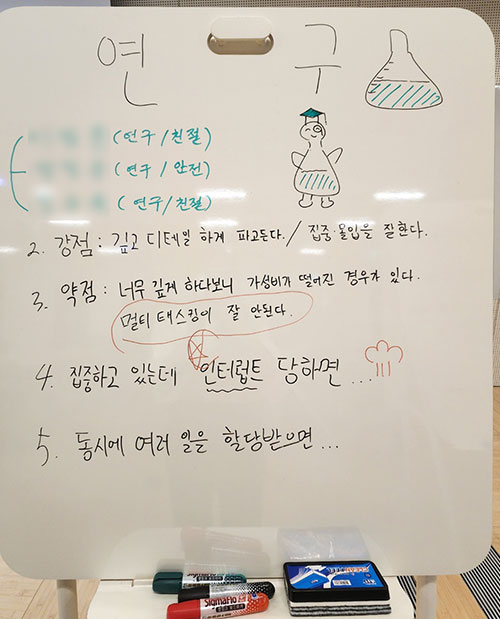 연구
(연구/친절)
(연구/안전)
(연구/친절)
2. 강점: 깊고 디테일 하게 파고든다. / 집중·몰입을 잘한다.
3. 약점: 너무 깊게 하다보니 가성비가 떨어진 경우가 있다.
멀티 태스킹이 잘 안된다.
4. 집중하고 있는데 인터럽트 당하면...
5. 동시에 여러 일을 할당받으면...
SigmaFlo
SigmaFlo